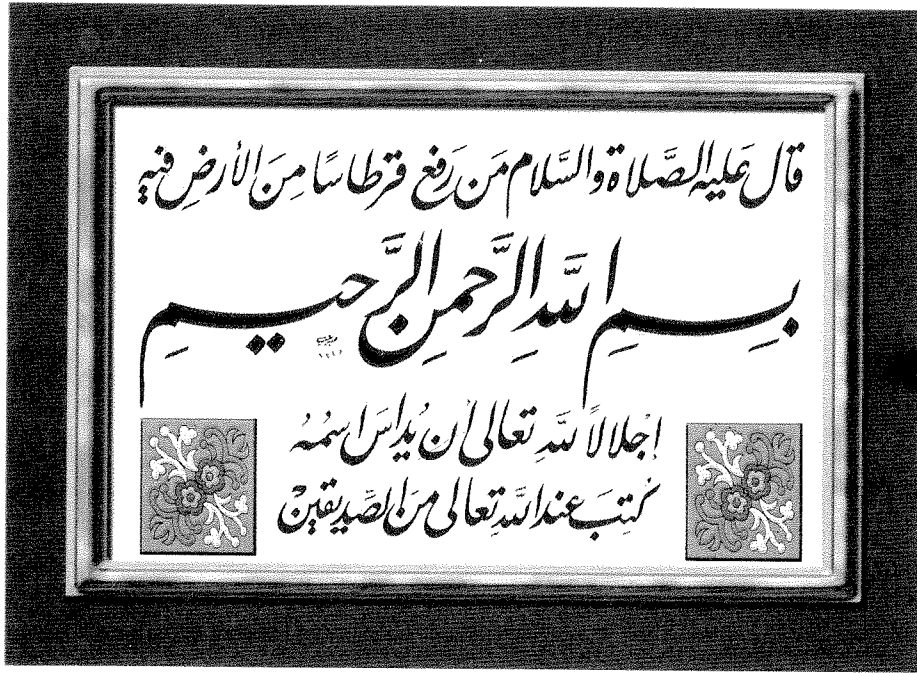 قال عليه الصَّلاة والسَّلام مَن رَفع قرطاسًا مِنَ الأرضِ فيهِ
بِسمِ اللّٰهِ الرَّحمنِ الرَّحيمِ
إجلالاً للّٰهِ تعالى ان يُداسَ اسمُهُ
كُتِبَ عند اللّٰهِ تعالى منَ الصِّديقينْ